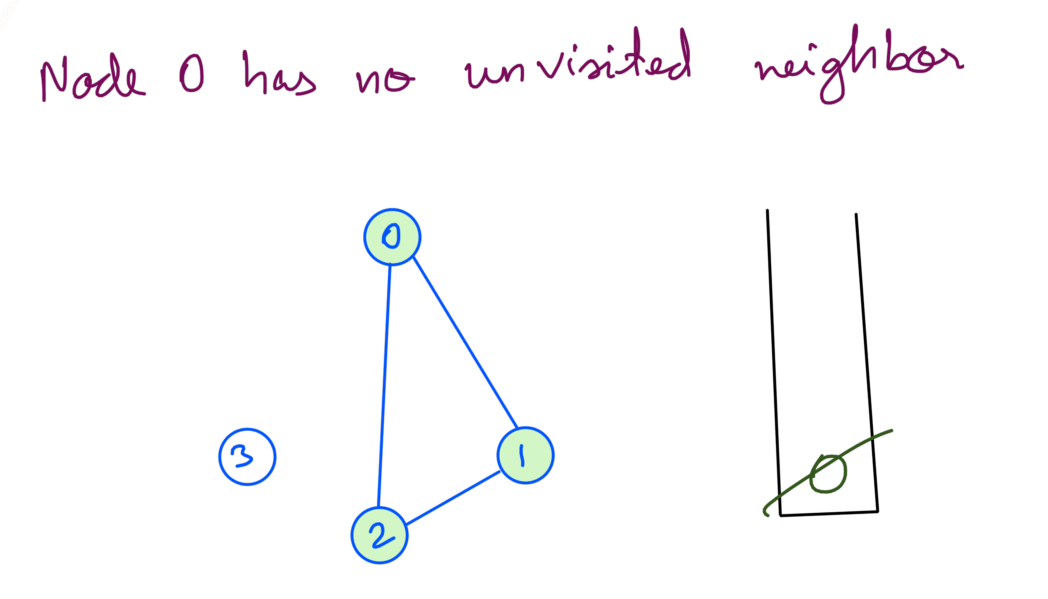 Node 0 has no unvisited neighbor
0
3
1
2
0